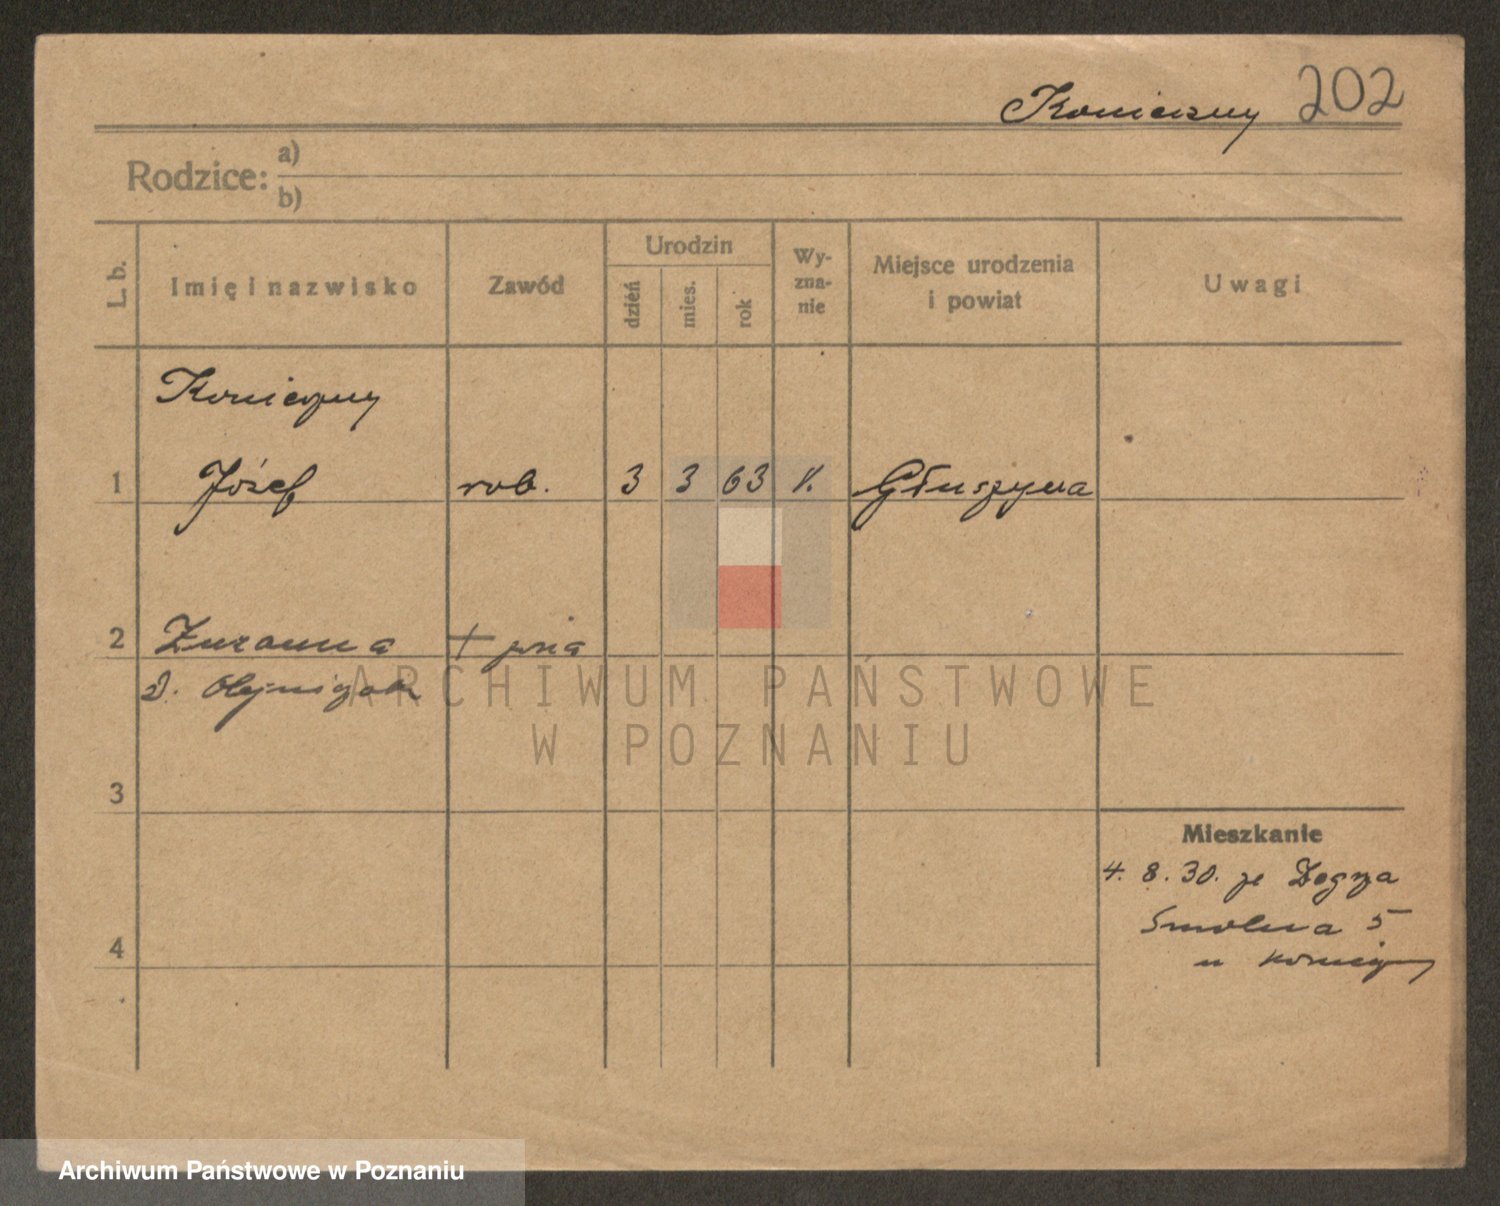 Konieczny 202
Rodzice: a)
b)
L. b. Imię i nazwisko Zawód Urodzin dzień mies. rok Wy-zna-nie Miejsce urodzenia i powiat Uwagi
Konieczny
1 Józef rob. 3 3 63 k. Głuszyna
2 Zuzanna +
d. Olejniczak
ARCHIWUM PAŃSTWOWE
W POZNANIU
3
Mieszkanie
4. 8. 30. ze
Smolna 5
4 u
Archiwum Państwowe w Poznaniu